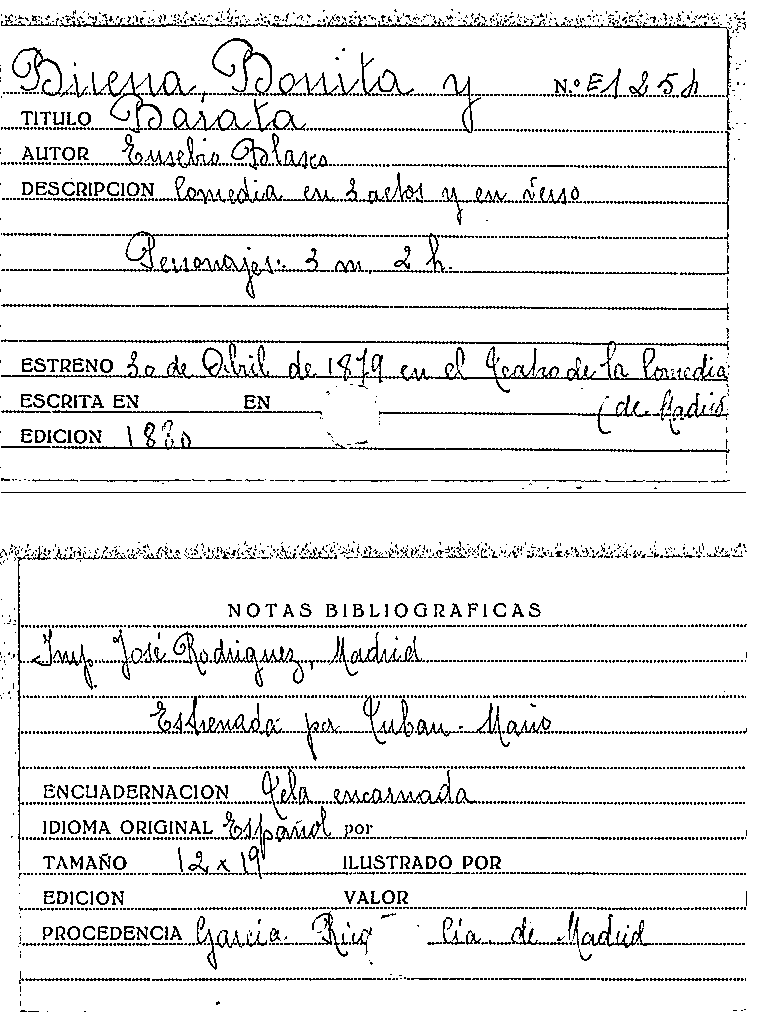 Buena, Bonita y N.º E1254
TITULO Barata
AUTOR Eusebio Blasco
DESCRIPCION Comedia en 3 actos y en verso
Personajes: 3 m. 2 h.
ESTRENO 30 de Abril de 1879 en el Teatro de la Comedia
ESCRITA EN EN (de Madrid
EDICION 1880
NOTAS BIBLIOGRAFICAS
Imp. José Rodriguez, Madrid
Estrenada por Tubau - Mario
ENCUADERNACION Tela encarnada
IDIOMA ORIGINAL Español por
TAMAÑO 12 x 19 ILUSTRADO POR
EDICION VALOR
PROCEDENCIA García Rico Cía. de Madrid